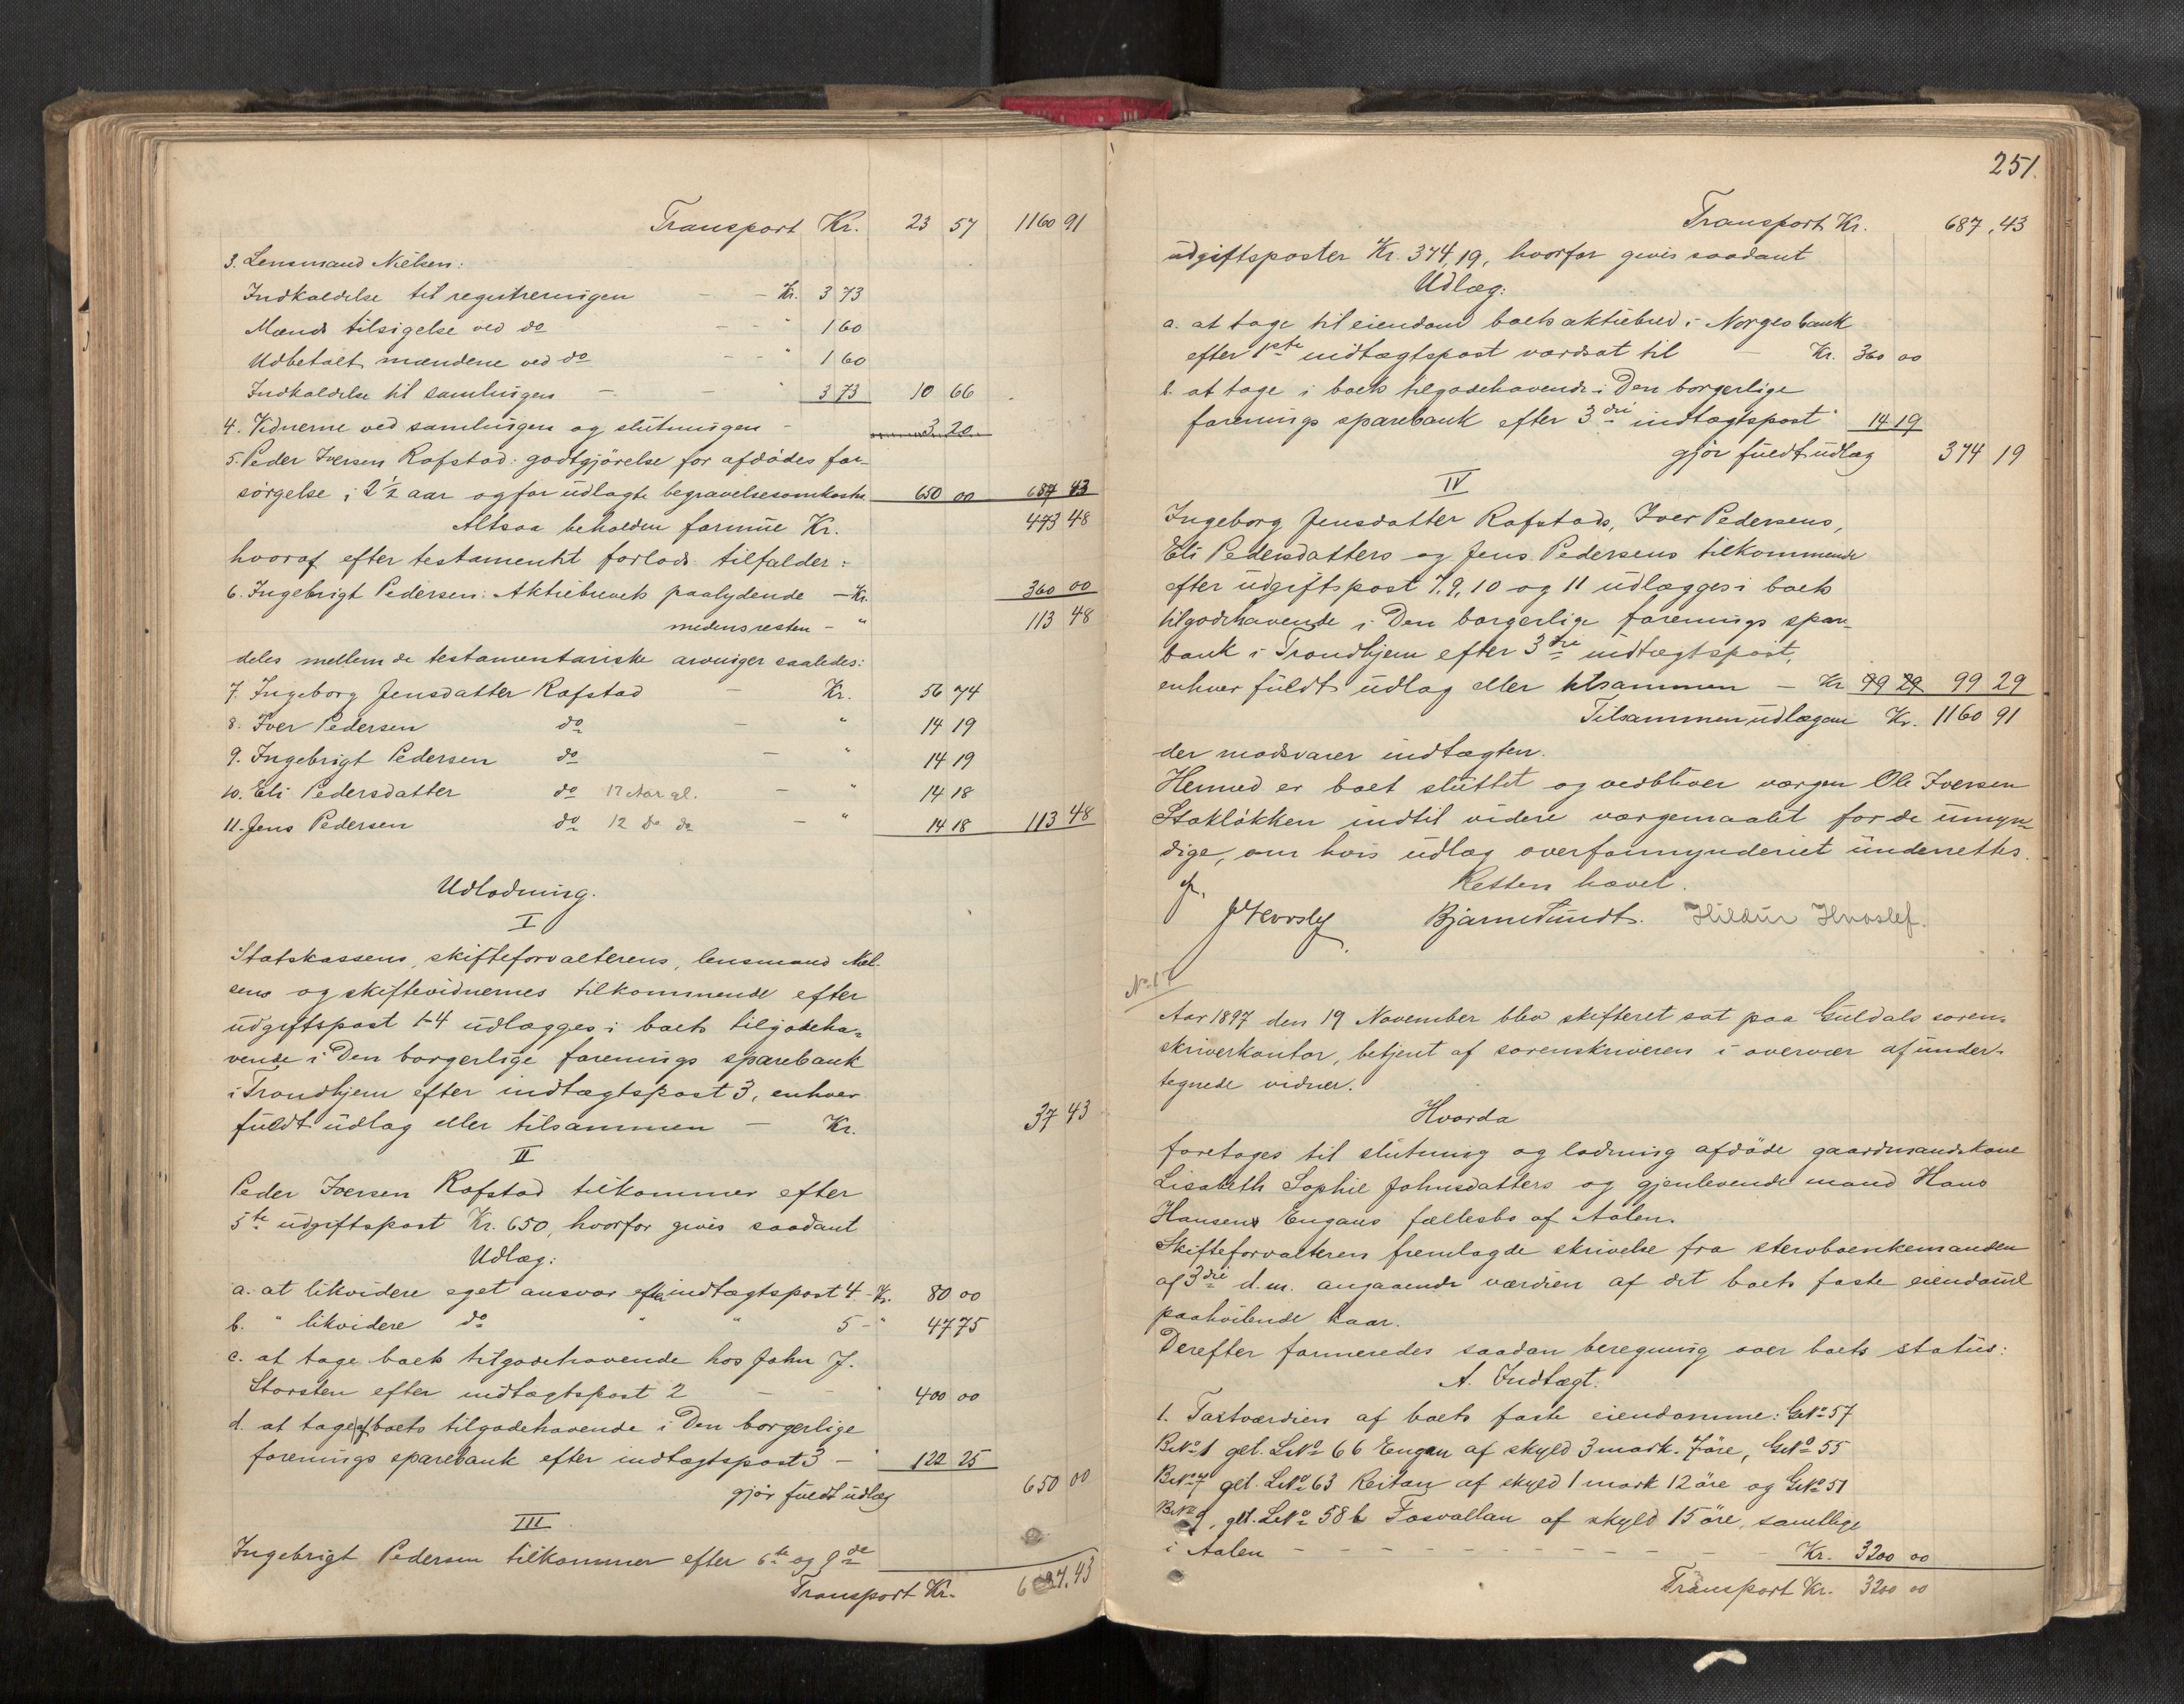 Transport Kr. 23 57 1160 91
3. Lensmand Nielsen:
Indkaldelse til registreringen - - Kr. 3 73
Mænds tilsigelse ved do - - " 1 60
Udbetalt mændene ved do - - " 1 60
Indkaldelse til samlingen - - " 3 73 10 66
4. Vidnerne ved samlingen og slutningen - 3 20
5. Peder Iversen Rafstad: godtgjörelse for afdödes for-
sörgelse i 2 1/2 aar og for udlagte begravelsesomkostn. 650 00 687 43
Altsaa beholden formue Kr. 473 48
hvoraf efter testamentet forlods tilfalder:
6. Ingebrigt Pedersen: Aktiebrevets paalydende - Kr. 360 00
medens resten - " 113 48
deles mellem de testamentariske arvinger saaledes:
7. Ingeborg Jensdatter Rafstad - Kr. 56 74
8. Iver Pedersen do - " 14 19
9. Ingebrigt Pedersen do - " 14 19
10. Eli Pedersdatter do 17 Aar gl. - " 14 18
11. Jens Pedersen do 12 do do - " 14 18 113 48
Udlodning.
I
Statskassens, skifteforvalterens, lensmand Niel-
sens og skiftevidnernes tilkommende efter
udgiftspost 1-4 udlægges i boets tilgodeha-
vende i Den borgerlige forenings sparebank
i Trondhjem efter indtægtspost 3, enhver
fuldt udlæg eller tilsammen - Kr. 37 43
II
Peder Iversen Rafstad tilkommer efter
5te udgiftspost Kr. 650, hvorfor gives saadant
Udlæg:
a. at likvidere eget ansvar efter indtægtspost 4 - Kr. 80 00
b. " likvidere do " " 5 - " 47 75
c. at tage boets tilgodehavende hos John J.
Storsten efter indtægtspost 2 - - " 400 00
d. at tage af boets tilgodehavende i Den borgerlige
forenings sparebank efter indtægtspost 3 - " 122 25
gjör fuldt udlæg 650 00
III
Ingebrigt Pedersen tilkommer efter 6te og 9de
Transport Kr. 687,43
251.
Transport Kr. 687,43
udgiftsposter Kr. 374,19, hvorfor gives saadant
Udlæg:
a. at tage til eiendom boets aktiebrev i Norges bank
efter 1ste indtægtspost værdsat til - Kr. 360 00
b. at tage i boets tilgodehavende i Den borgerlige
forenings sparebank efter 3die indtægtspost " 14 19
gjör fuldt udlæg 374 19
IV
Ingeborg Jensdatter Rafstads, Iver Pedersens,
Eli Pedersdatters og Jens Pedersens tilkommende
efter udgiftspost 7, 9, 10 og 11 udlægges i boets
tilgodehavende i Den borgerlige forenings spare-
bank i Trondhjem efter 3die indtægtspost,
enhver fuldt udlæg eller tilsammen - Kr 99 29 99 29
Tilsammen udlægene Kr. 1160 91
der modsvarer indtægten.
Hermed er boet sluttet og vedbliver værgen Ole Iversen
Stoklökken indtil videre værgemaalet for de umyn-
dige, om hvis udlæg overformynderiet underrettes.
Retten hævet.
Bjarne Sundt. Hildur Hvoslef.
No. 17
Aar 1897 den 19 November blev skifteret sat paa Guldals soren-
skriverkontor, betjent af sorenskriveren i overvær af under-
tegnede vidner.
Hvorda
foretoges til slutning og lodning afdöde gaardmandskone
Lisabeth Sophie Johnsdatters og gjenlevende mand Hans
Hansens Engans fællesbo af Aalen.
Skifteforvalteren fremlagde skrivelse fra stervboenkemanden
af 3die d.m. angaaende værdien af det boets faste eiendomme
paahvilende kaar.
Derefter formeredes saadan beregning over boets status:
A. Indtægt:
1. Taxtværdien af boets faste eiendomme: GNo 57
BNo 1 gel. LNo 66 Engan af skyld 3 mark 7 öre, GNo 55
BNo 7 gel. LNo 63 Reitan af skyld 1 mark 12 öre og GNo 51
BNo 9, gel. LNo 58 b Fosvollan af skyld 15 öre, samtlige
i Aalen - - - Kr. 3200 00
Transport Kr. 3200 00